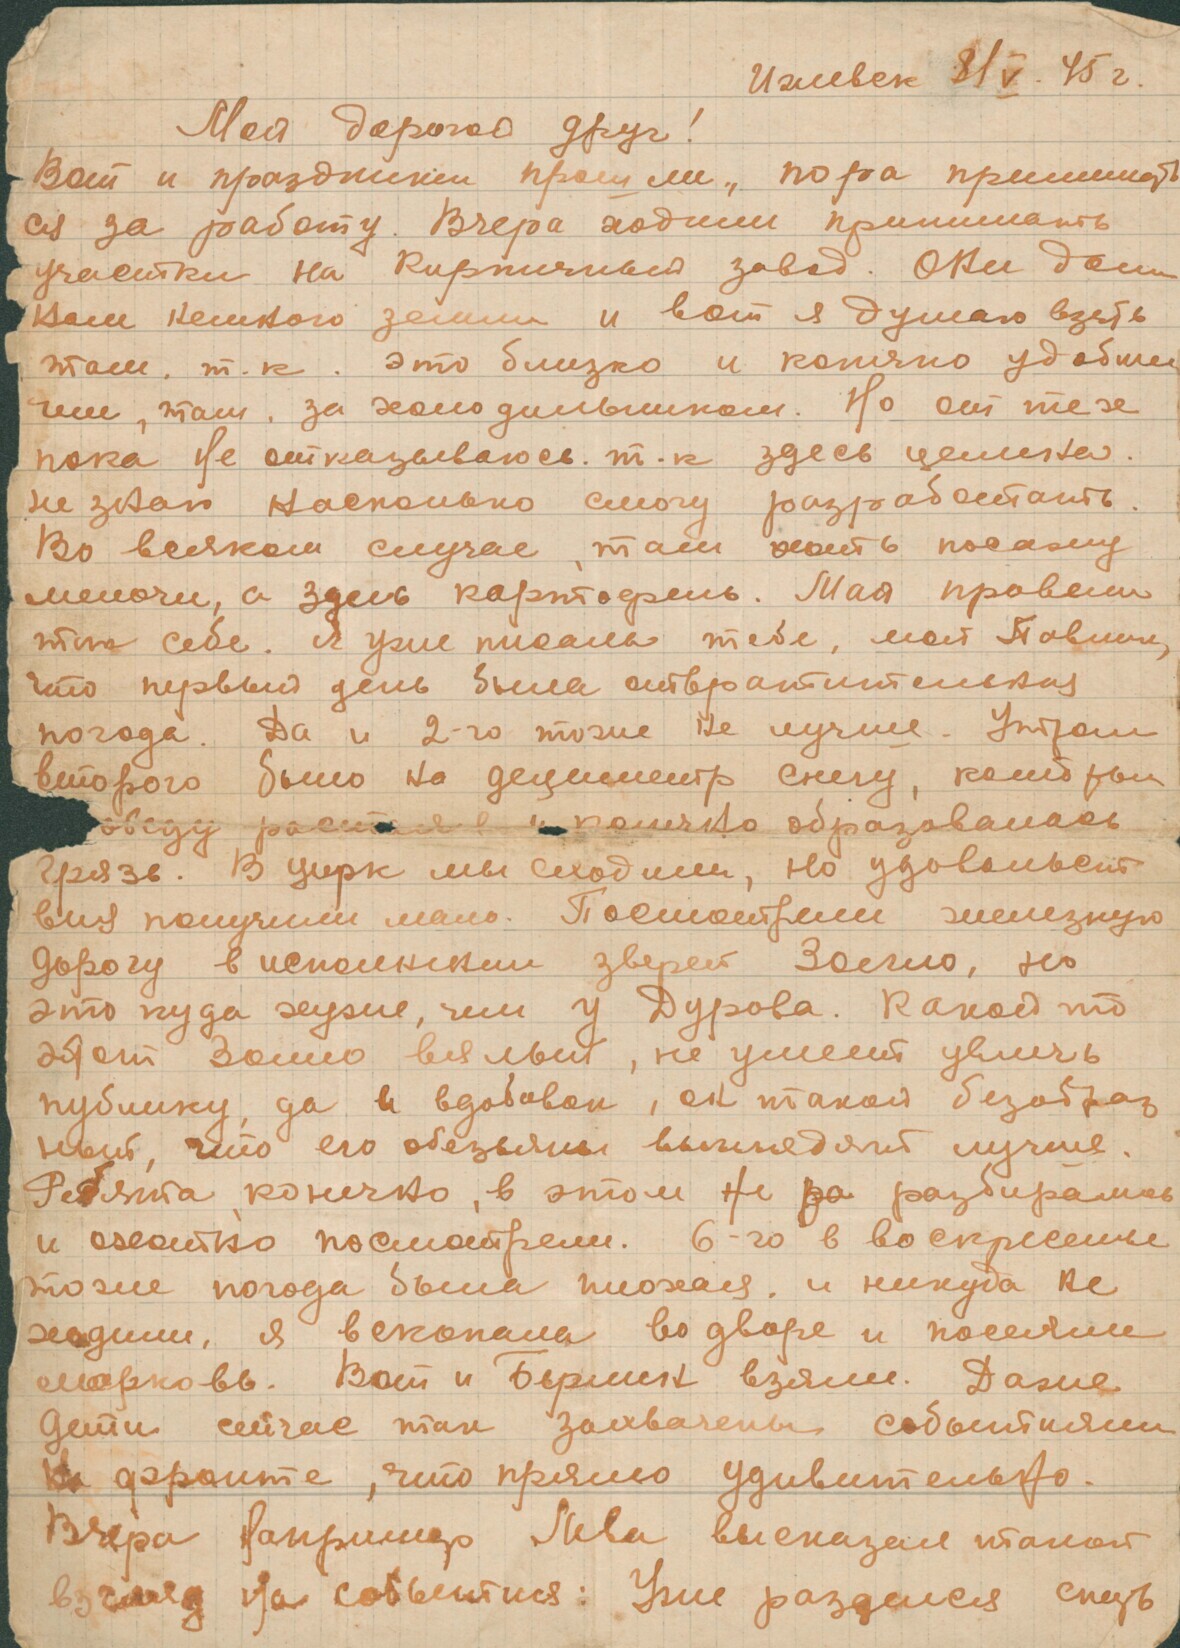 Ижевск 8/V. 45 г.
Мой дорогой друг!
Вот и праздники прошли, пора принимать
ся за работу. Вчера ходили принимать
участки на Кирпичный завод. Они дали
нам немного земли и вот я думаю взять
там, т.к. это близко и конечно удобней
чем, там, за холодильником. Но от тех
пока не отказываюсь. т.к здесь целина.
не знаю насколько смогу разработать.
Во всяком случае, там хоть посажу
мелочи, а здесь картофель. Май провели
так себе. Я уже писала тебе, мой Павлик,
что первый день была отвратительная
погода. Да и 2-го тоже не лучше. Утром
второго было на дециметр снегу, который
обеду растаял и конечно образовалась
грязь. В цирк мы сходили, но удовольст
вия получили мало. Посмотрели железную
дорогу в исполнении зверей Запашно, но
это куда хуже, чем у Дурова. Какой то
этот вялый, не умеет увлечь
публику, да и вдобавок, он такой безобраз
ный, что его обезьяны выглядят лучше.
Ребята, конечно, в этом не ра разбирались
и охотно посмотрели. 6-го в воскресенье
тоже погода была плохая, и никуда не
ходили, я вскопала во дворе и посеяли
морковь. Вот и Берлин взяли. Даже
дети сейчас так захвачены событиями
на фронте, что прямо удивительно.
Вчера например Лева высказал такой
взгляд на события: Уже разделся спать